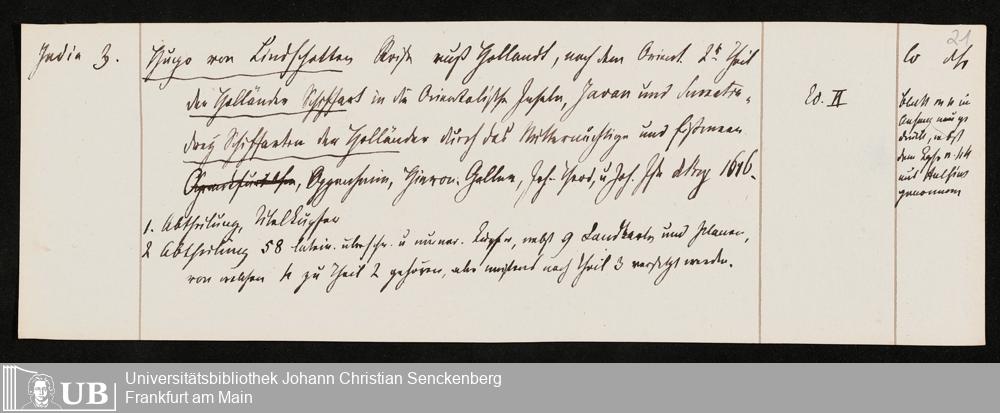 21
India 3. Hugo von Lindschotten Reise auß Hollandt, nach dem Orient. 2r Theil
der Holländer Schiffart in die Orientalische Inseln, Javan und Sumatra,
drey Schiffarten der Holländer durch das Mitternächtige und Eißmeer
Oppenheim, Hieron. Galler, Joh. Theod. u Joh. Isr. d Bry 1616.
1. Abtheilung, Titelkupfer
2 Abtheilung 58 latein. u numer. Kupfer, nebst 9 Landkarten und Planen,
von welchen 4 zu Theil 2 gehören, aber meistens nach Theil 3 versetzt werden.
Ed. II
Blatt in
Anfang
nebst
dem
genommen
Universitätsbibliothek Johann Christian Senckenberg
Frankfurt am Main
UB